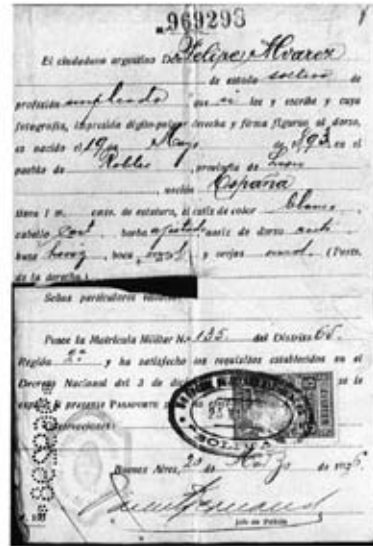 N. 969293
El ciudadano argentino Don Felipe Alvarez
de estado soltero de
profesión empleado que si lee y escribe y cuya
fotografía, impresión dígito-pulgar derecha y firma figuran al dorso,
es nacido el 19 de Mayo de 1893 en el
pueblo de Robles, provincia de León
, nación España
tiene 1 m. cent. de estatura, el cutis de color blanco,
cabello barba afeitada nariz de dorso recto
base boca y orejas (Poste.
de la derecha)
Señas particulares visibles:
Posee la Matrícula Militar N.o 135 del Distrito 66
Región 2a y ha satisfecho los requisitos establecidos en el
Decreto Nacional del 3 de se le
el presente PASAPORTE
Observaciones:
BOLIVIA
Buenos Aires, 20 de Marzo de 1926.
Jefe de Policía